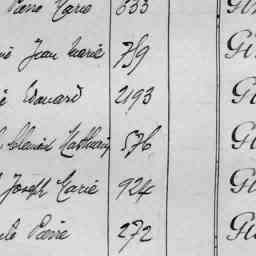 Pierre Marie 633 Gl
Jean Marie 759 Gl
Edouard 2193 Gl
Clément Mathurin 576 Gl
Joseph Marie 924 Gl
Pierre 272 Gl